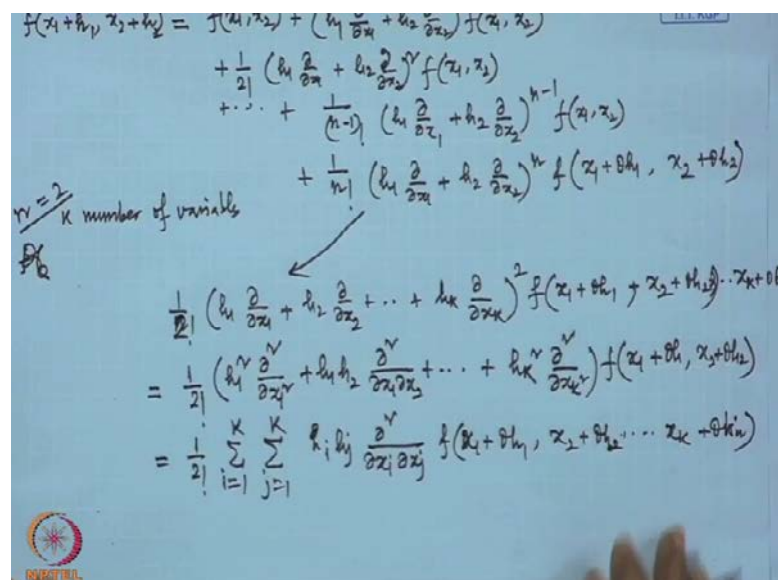 f(x₁+h₁, x₂+h₂) = f(x₁,x₂) + (h₁ ∂/∂x₁ + h₂ ∂/∂x₂) f(x₁,x₂)
+ 1/2! (h₁ ∂/∂x₁ + h₂ ∂/∂x₂)² f(x₁,x₂)
+ ⋯ + 1/(n-1)! (h₁ ∂/∂x₁ + h₂ ∂/∂x₂)ⁿ⁻¹ f(x₁,x₂)
+ 1/n! (h₁ ∂/∂x₁ + h₂ ∂/∂x₂)ⁿ f(x₁+θh₁, x₂+θh₂)
n = 2
K number of variable
1/2! (h₁ ∂/∂x₁ + h₂ ∂/∂x₂ + ⋯ + hK ∂/∂xK)² f(x₁+θh₁, x₂+θh₂) ⋯ xK+θ
= 1/2! (h₁² ∂²/∂x₁² + h₁h₂ ∂²/∂x₁∂x₂ + ⋯ + hK² ∂²/∂xK²) f(x₁+θh₁, x₂+θh₂)
= 1/2! Σ_{i=1}^{K} Σ_{j=1}^{K} hᵢhⱼ ∂²/∂xᵢ∂xⱼ f(x₁+θh₁, x₂+θh₂, ⋯ xK+θhK)
I.I.T. KGP
NPTEL